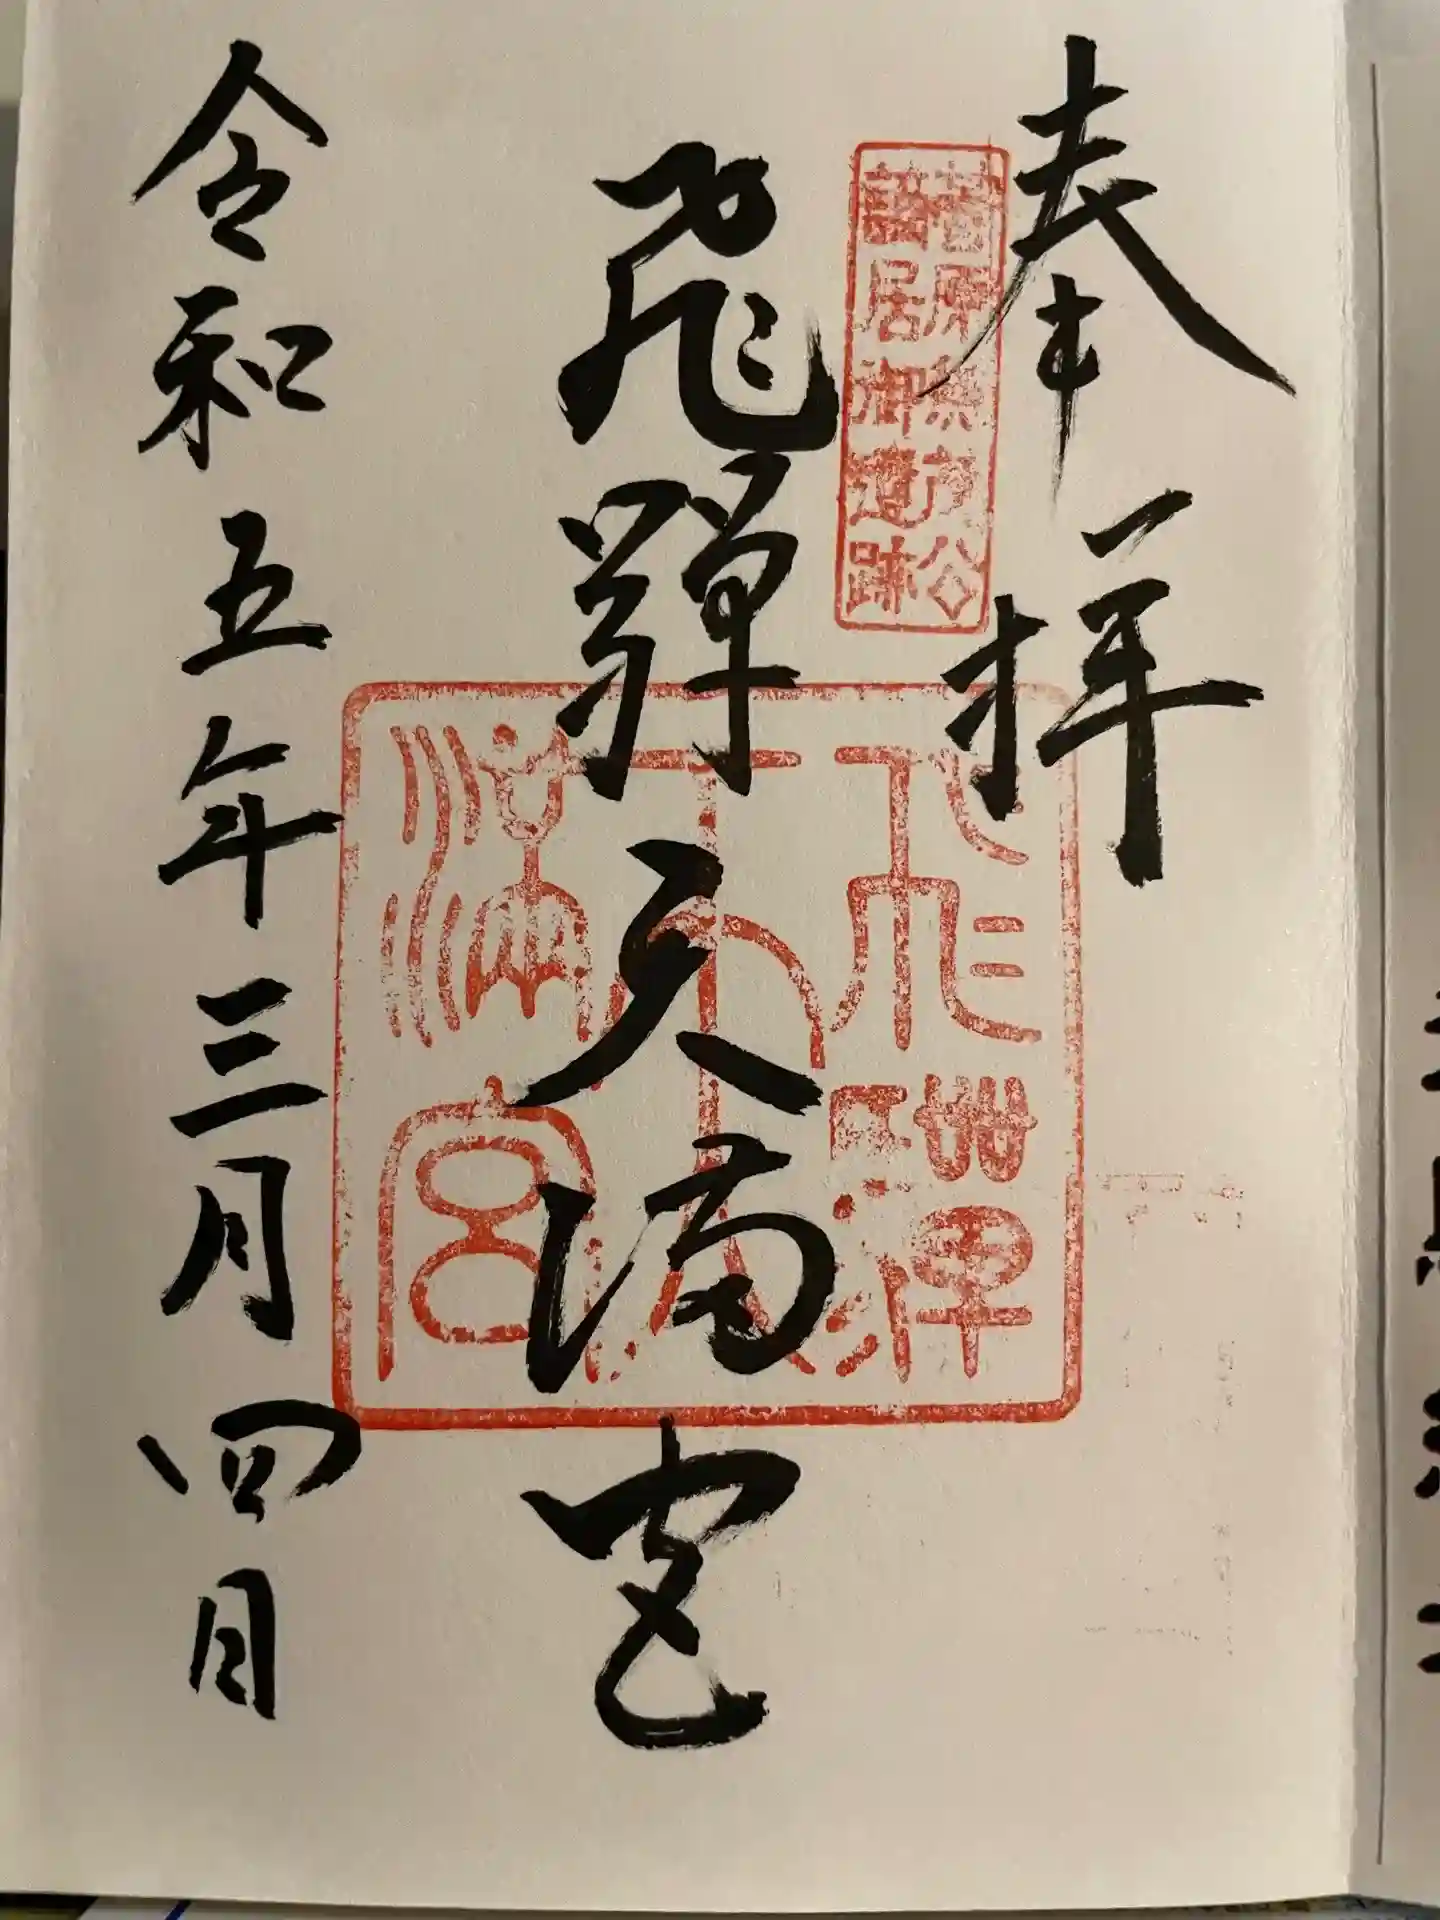 奉拝
菅原兼茂公
謫居御遺跡
飛驒天満宮
飛驒
天
満宮
令和五年三月四日